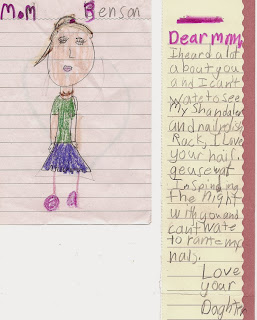 Mom Benson
Dear mom
I heard a lot
about you
and I cant
wate to see
My Shandaler
and nailpolish
Rack, I Love
your hair.
the night
with you and
cant wate
to my
nals.
Love
your
Doghter